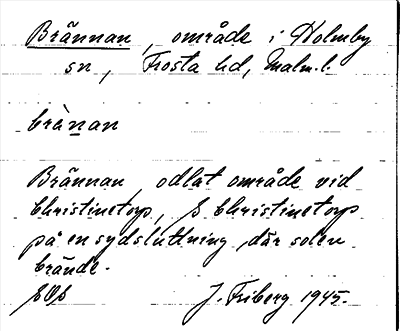 Brännan, område i Holmby
sn, Frosta hd, Malm.l.
brànan
Brännan, odlat område vid
Christinetorp, S Christinetorp
på en sydsluttning, där solen
brände.
J. Friberg 1945.